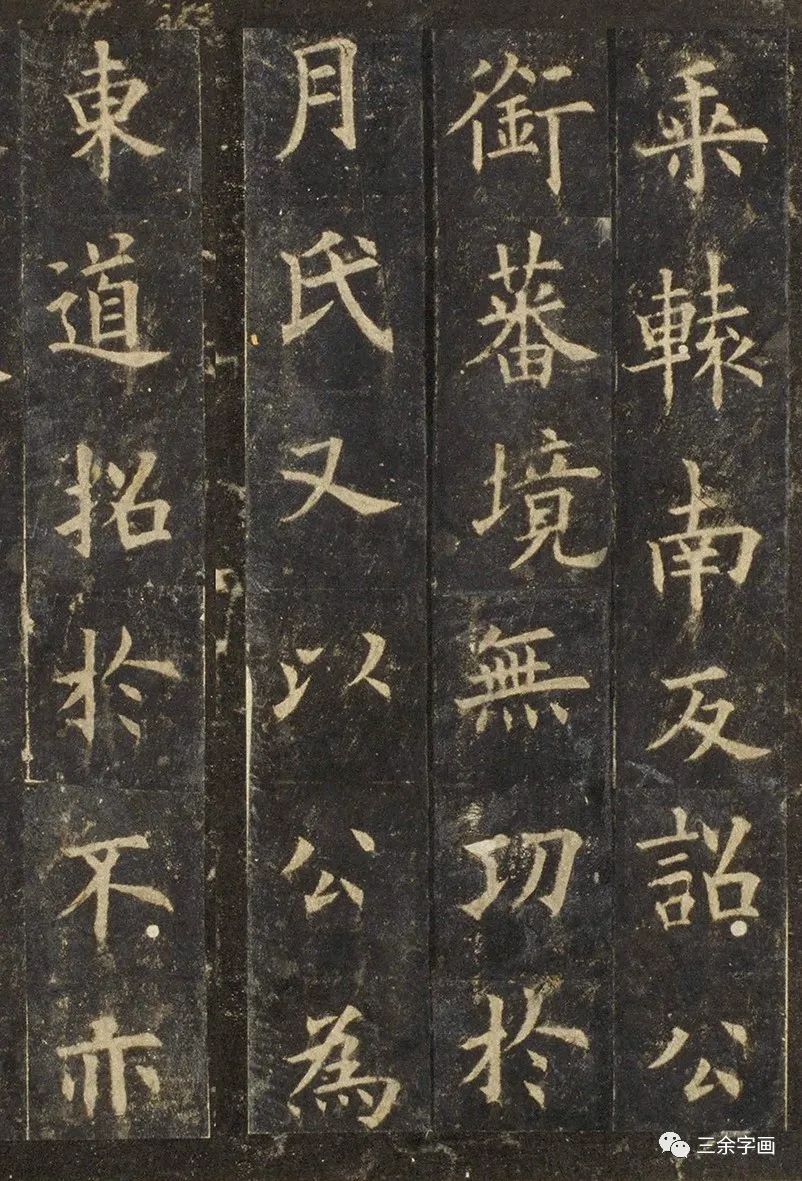 乘轅南反詔公
銜蕃境無功於
月氏又以公為
東道招於不亦
三余字画